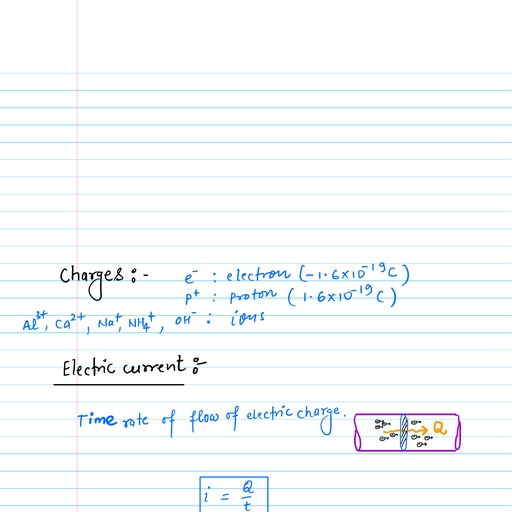 Charges :- e⁻ : electron (-1.6×10⁻¹⁹C)
p⁺ : proton (1.6×10⁻¹⁹C)
Al³⁺, Ca²⁺, Na⁺, NH₄⁺, OH⁻ : ions
Electric current :-
Time rate of flow of electric charge.
Q
i = Q/t